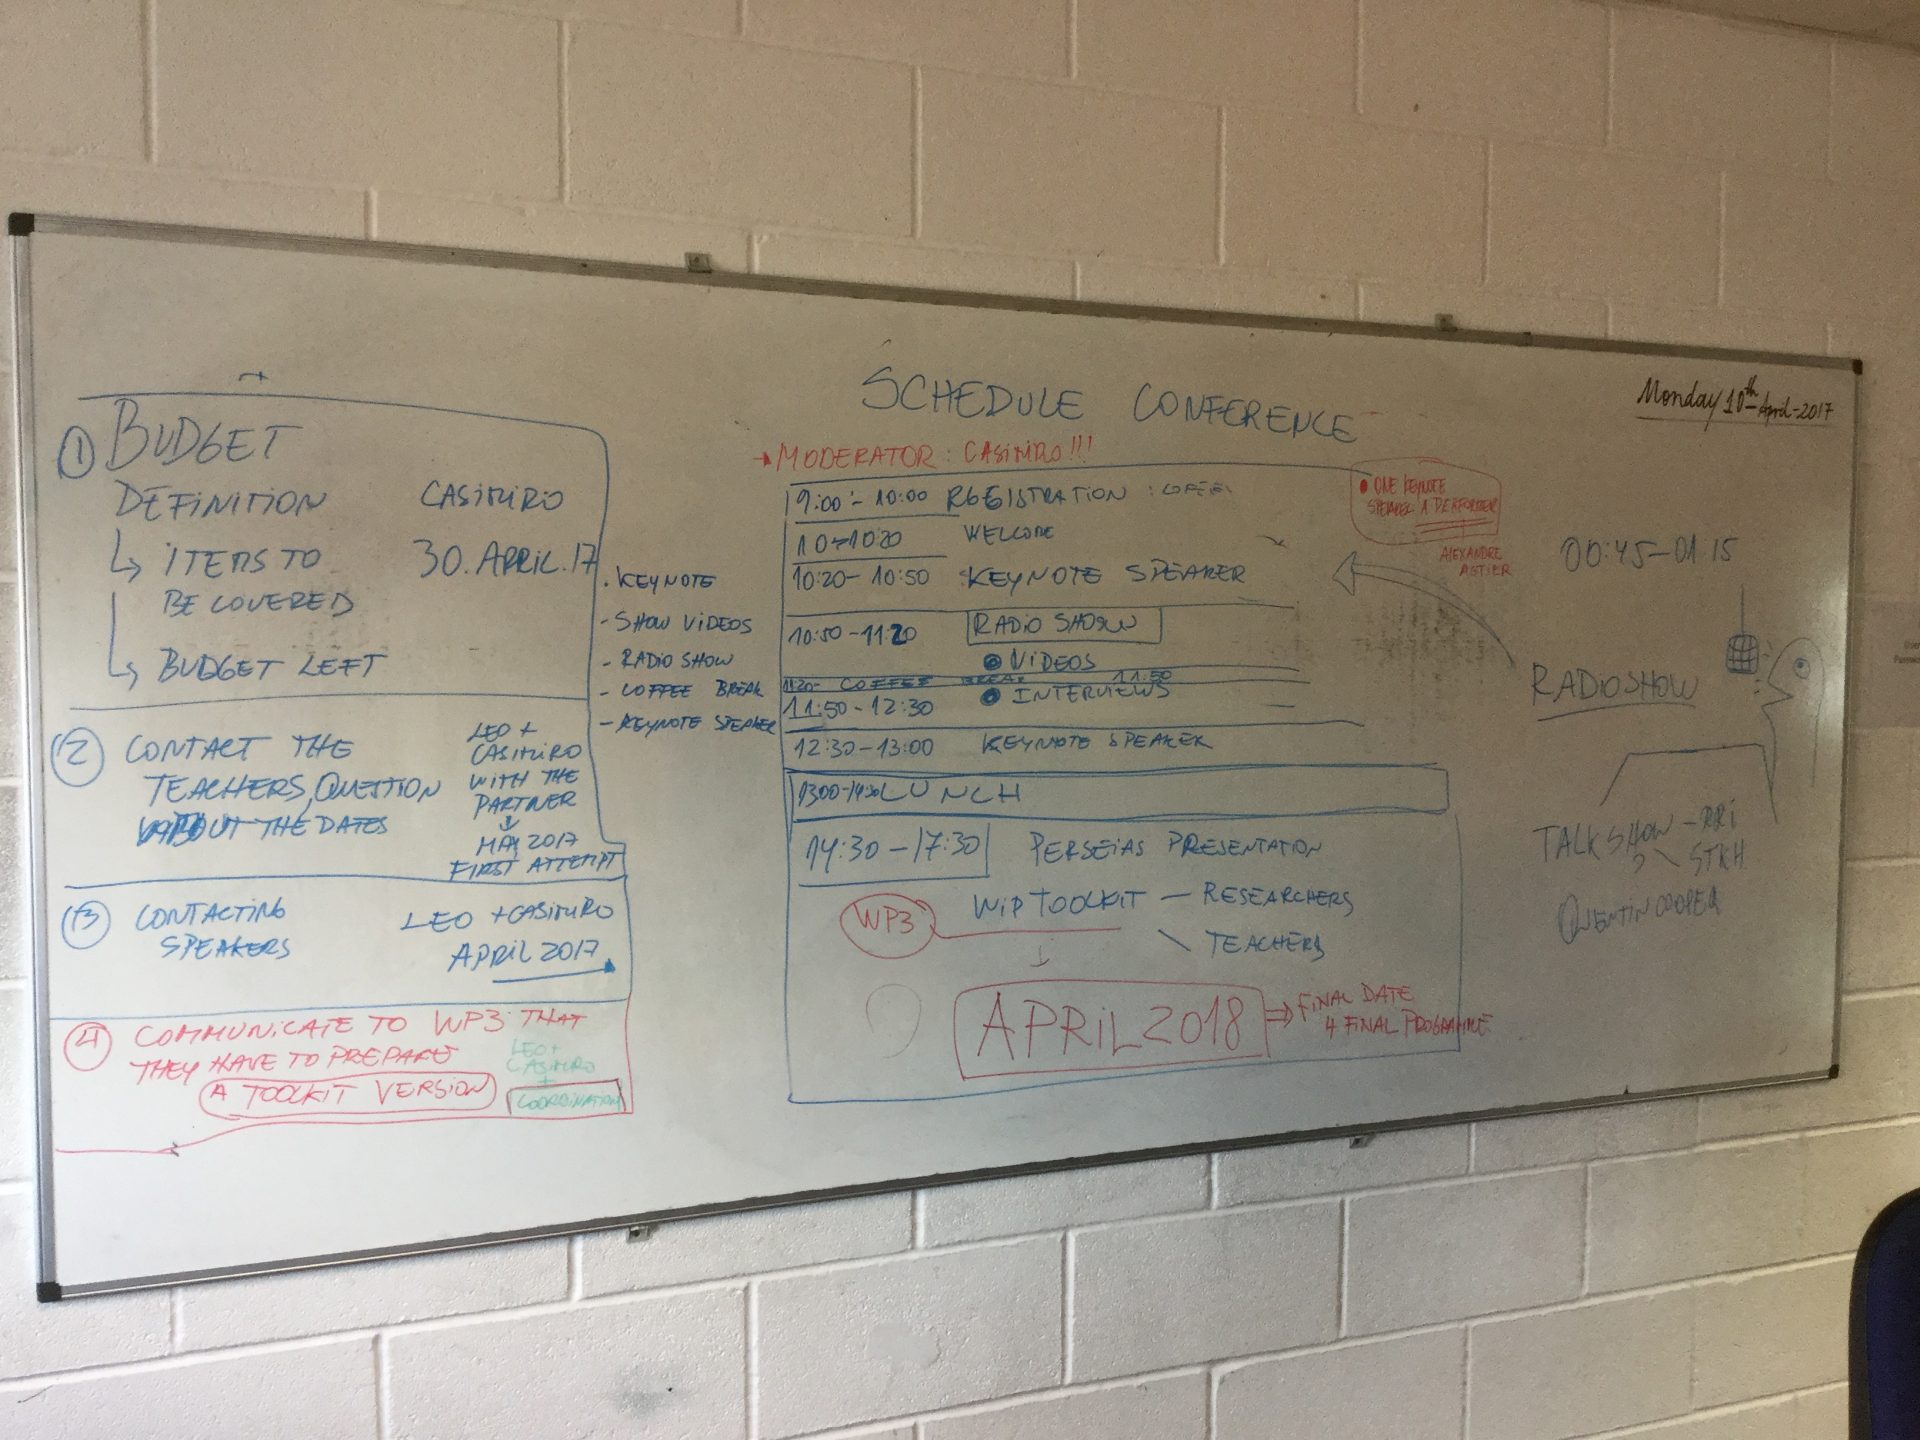 SCHEDULE CONFERENCE
Monday 10th April-2017
1 BUDGET
DEFINITION CASIMIRO
ITEMS TO 30.APRIL.17
BE COVERED
BUDGET LEFT
2 CONTACT THE
TEACHERS, QUESTION
ABOUT THE DATES
LEO +
CASIMIRO
WITH THE
PARTNER
MAY 2017
FIRST ATTEMPT
3 CONTACTING LEO + CASIMIRO
SPEAKERS APRIL 2017
4 COMMUNICATE TO WP3 THAT
THEY HAVE TO PREPARE
A TOOLKIT VERSION
LEO +
CASIMIRO
+
COORDINATION
. KEYNOTE
- SHOW VIDEOS
- RADIO SHOW
- COFFEE BREAK
- KEYNOTE SPEAKER
MODERATOR: CASIMIRO!!!
9:00 - 10:00 REGISTRATION : COFFEE
10-10:20 WELCOME
10:20 - 10:50 KEYNOTE SPEAKER
10:50 - 11:20 RADIO SHOW
• VIDEOS
11:20- COFFEE BREAK 11:50
• INTERVIEWS
11:50 - 12:30
12:30 - 13:00 KEYNOTE SPEAKER
13:00-14:30 LUNCH
14:30 - 17:30 PERSEIAS PRESENTATION
WP3 WIP TOOLKIT - RESEARCHERS
TEACHERS
APRIL 2018 ⇒ FINAL DATE
4 FINAL PROGRAMME
• ONE KEYNOTE
SPEAKER A PERFORMER
ALEXANDRE
ASTIER
00:45-01:15
RADIOSHOW
TALK SHOW - RRI
STKH
QUENTIN COOPER